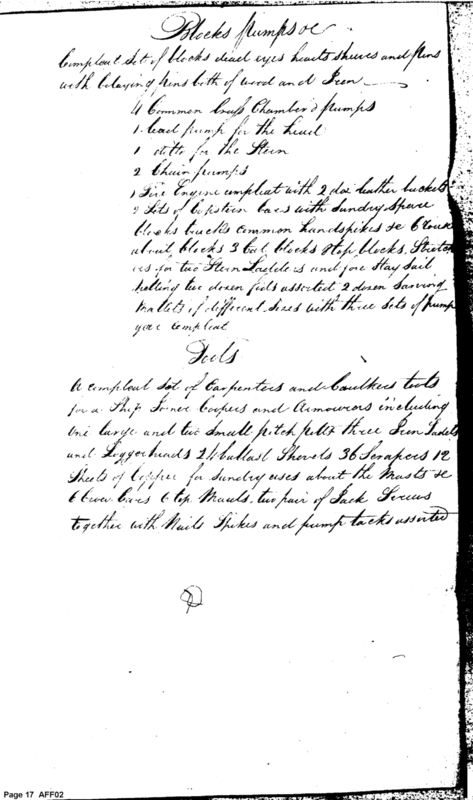 Blocks pumps &c
Compleat Set of blocks dead eyes hearts sheves and pins
with belaying pins both of wood and Iron
4 Common brass Chamber'd pumps
1 lead pump for the head
1 ditto for the Stern
2 Chain pumps
1 Fire Engine compleat with 2 doz leather buckets
2 Sets of Capstern bars with Sundry Spare
blocks common handspikes &c 6
about blocks 3 Cat blocks Stop blocks,
for two Stern Ladders and fore Stay Sail
netting two dozen fids assorted 2 dozen Sarving
Mallets of different Sizes with three Sets of pump
gear compleat
Tools
A compleat Set of Carpenters and Caulkers tools
for a Ship Coopers and Armourers including
one large and two Small pitch potts three Iron Ladels
and Loggerheads 24 ballast Shovels 36 Scrapers 12
Sheets of Copper for Sundry uses about the Masts &c
6 Crow bars 6 top Mauls, two pair of Jack Screws
together with Nails Spikes and pump tacks assorted
Page 17 AFF02